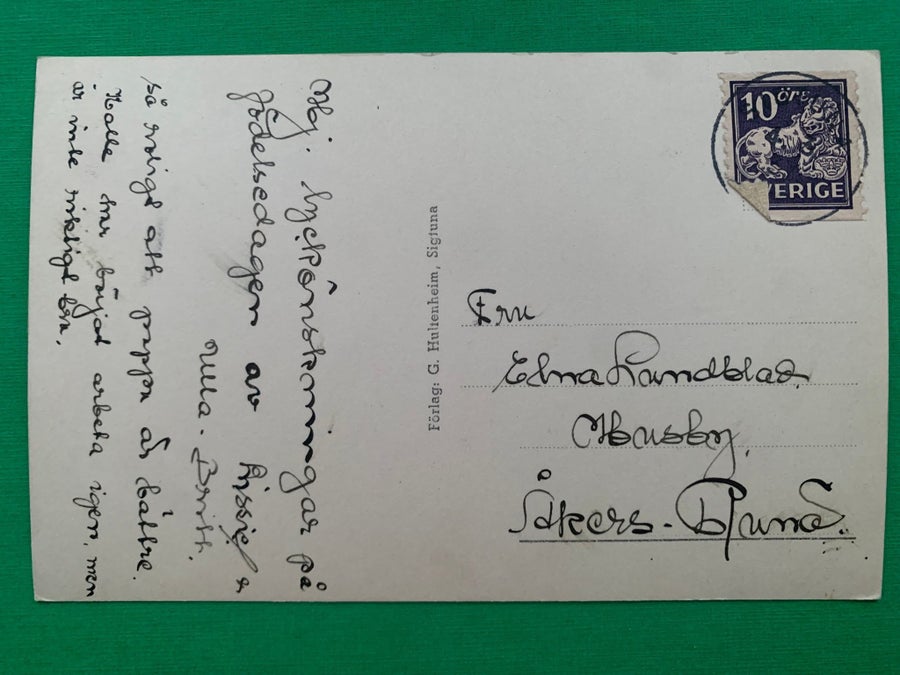 Hej. lyckönskningar på
födelsedagen av Lissie &
Ulla-Britt.
Så roligt att pappa är bättre.
Kalle har börjat arbeta igen, men
är inte riktigt bra.
Förlag: G. Hultenheim, Sigtuna
10 öre
SVERIGE
Fru
Edna Landblad
Husby
Åkers-Runö.